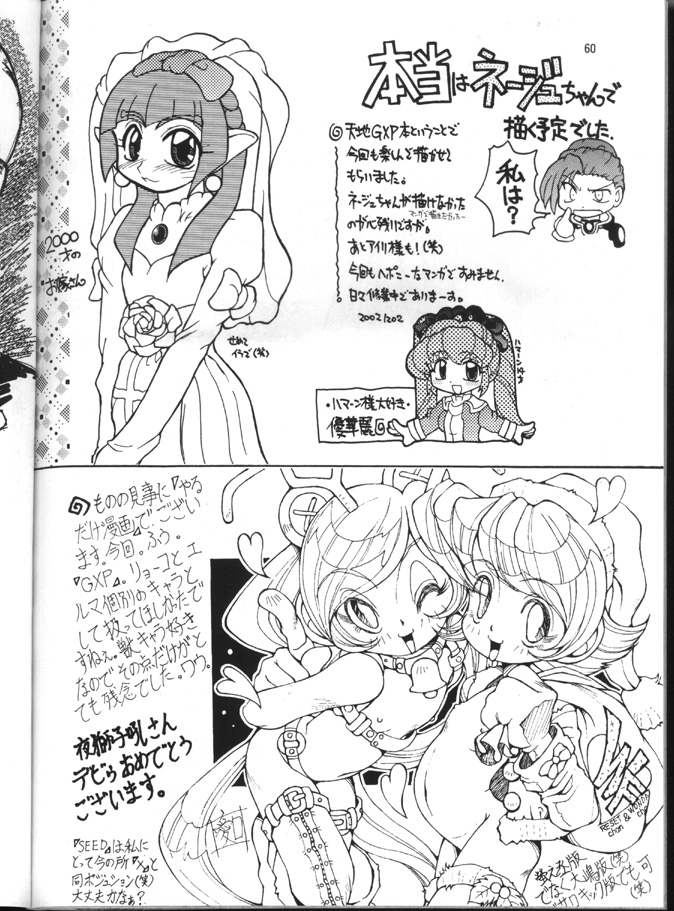 60
本当はネージュちゃんで
描く予定でした.
私は？
天地GXP本ということで
今回も楽しんで描かせて
もらいました。
ネージュちゃんが描けなかった
のが心残りですが。
あとアイリ様も!(笑)
今回もヘボニーなマンガですみません.
日々修業中でありまーす。
2002/202
2000
才の
お嫁さん
せめて
イラで(笑)
ハマーン様
・ハマーン様大好き・
優華麗
ものの見事に『やる
だけ漫画』でござい
ます。今回。ふう。
『GXP』。リョーコとエ
ルマ個別のキャラと
して扱ってほしかったで
すねぇ。獣キャラ好き
なのでその点だけがと
ても残念でした。ワウ。
夜獅子吼さん
デビゥおめでとう
ございます。
『SEED』は私に
とって今の所『X』と
同ポジション(笑)
大丈夫かなぁ？
RESET & WOMAN
chan chan
でなく大嶋版(笑)
サワキック版でも可
(笑)